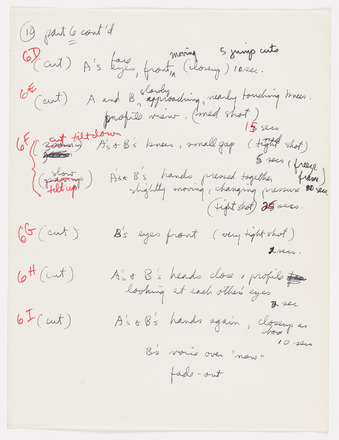 (19) part 6 cont'd
moving 5 jump cuts
6D (cut) A's face eyes, front, (closeup) 10 sec.
6E (cut) A and B, slowly approaching, nearly touching knees.
profile view, (med shot)
15 secs
6F cut tilt down A's & B's knees, small gap (med shot)
5 secs, (freeze frame)
(slow tilt up) A's & B's hands pressed together,
slightly moving, changing pressure 10 sec
(tight shot) 25 secs.
6G (cut) B's eyes front (very tight shot)
2 secs.
6H (cut) A's & B's heads close, profile
looking at each other's eyes
2 sec
6I (cut) A's & B's hands again, closeup as
10 secs
B's voice over "now"
fade-out